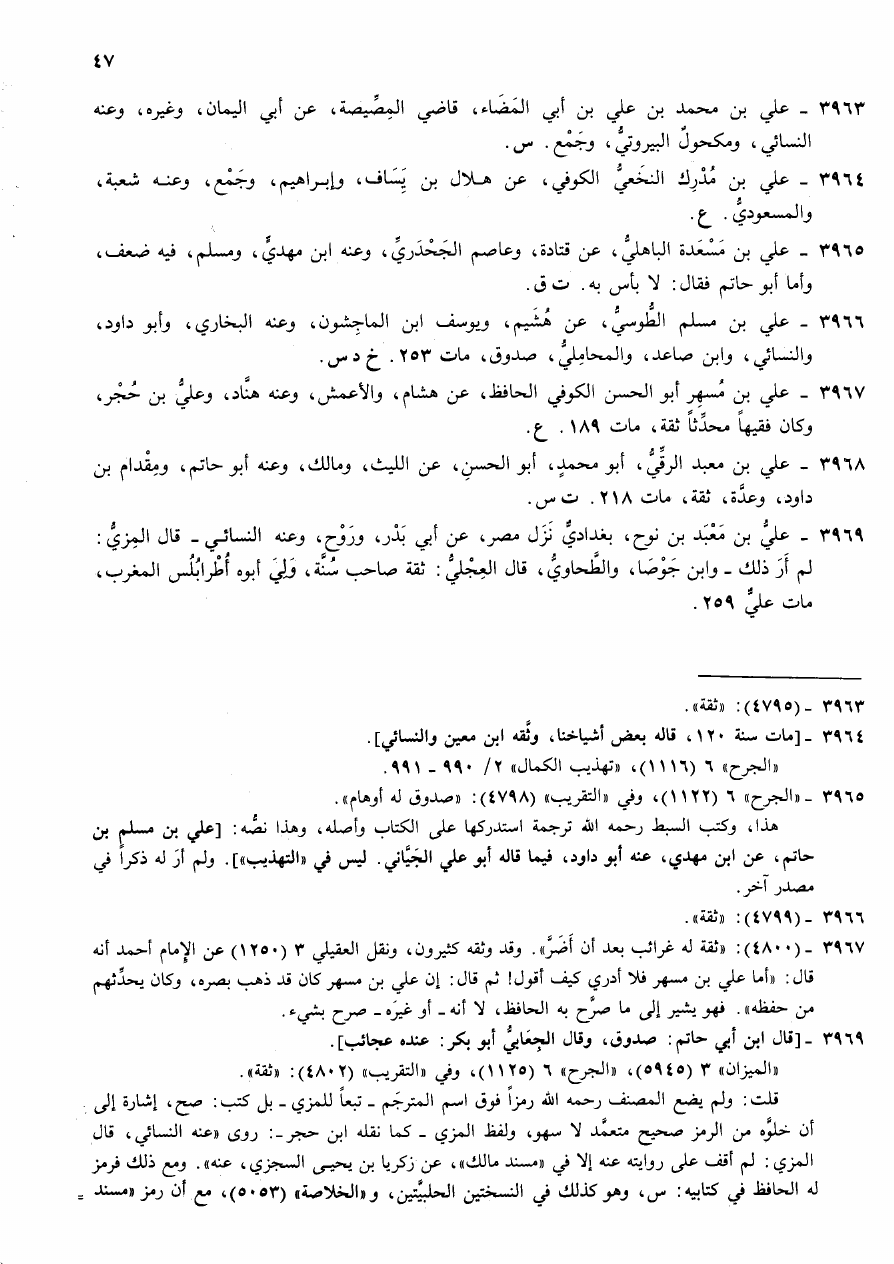 ٤٧
٣٩٦٣ ـ علي بن محمد بن علي بن أبي المَضَاء، قاضي المِصِّيصة، عن أبي اليمان، وغيره، وعنه
النسائي، ومكحولٌ البيروتيُّ، وجَمْع. س.
٣٩٦٤ ـ علي بن مُدْرِك النخَعيُّ الكوفي، عن هلال بن يَِسَاف، وإبراهيم، وجَمْع، وعنه شعبة،
والمسعوديُّ. ع.
٣٩٦٥ ـ علي بن مَسْعَدة الباهليُّ، عن قتادة، وعاصم الجَحْدَريِّ، وعنه ابن مهديٍّ، ومسلم، فيه ضعف،
وأما أبو حاتم فقال: لا بأس به. ت ق.
٣٩٦٦ ـ علي بن مسلم الطُّوسيُّ، عن هُشَيم، ويوسف ابن الماجِشون، وعنه البخاري، وأبو داود،
والنسائي، وابن صاعد، والمحامِليُّ، صدوق، مات ٢٥٣. خ د س.
٣٩٦٧ ـ علي بن مُسهِر أبو الحسن الكوفي الحافظ، عن هشام، والأعمش، وعنه هنَّاد، وعليُّ بن حُجْر،
وكان فقيهاً محدِّثاً ثقة، مات ١٨٩. ع.
٣٩٦٨ ـ علي بن معبد الرقِّيُّ، أبو محمدٍ، أبو الحسنِ، عن الليث، ومالك، وعنه أبو حاتم، ومِقْدام بن
داود، وعدَّة، ثقة، مات ٢١٨. ت س.
٣٩٦٩ ـ عليُّ بن مَعْبَد بن نوح، بغداديٌّ نَزَل مصر، عن أبي بَدْر، ورَوْح، وعنه النسائي ـ قال المِزيُّ:
لم أرَ ذلك ـ وابن جَوْصَا، والطَّحاويُّ، قال العِجْليُّ: ثقة صاحب سُنَّة، وَلِيَ أبوه أُطْرابُلُس المغرب،
مات عليٌّ ٢٥٩.
٣٩٦٣ ـ (٤٧٩٥): «ثقة».
٣٩٦٤ ـ [مات سنة ١٢٠، قاله بعض أشياخنا، وثَّقه ابن معين والنسائي].
«الجرح» ٦ (١١١٦)، «تهذيب الكمال» ٢/ ٩٩٠ ـ ٩٩١.
٣٩٦٥ ـ «الجرح» ٦ (١١٢٢)، وفي «التقريب» (٤٧٩٨): «صدوق له أوهام».
هذا، وكتب السبط رحمه الله ترجمة استدركها على الكتاب وأصله، وهذا نصُّه: [علي بن مسلم بن
حاتم، عن ابن مهدي، عنه أبو داود، فيما قاله أبو علي الجَيَّاني. ليس في «التهذيب»]. ولم أرَ له ذكراً في
مصدر آخر.
٣٩٦٦ ـ (٤٧٩٩): «ثقة».
٣٩٦٧ ـ (٤٨٠٠): «ثقة له غرائب بعد أن أَضَرَّ». وقد وثقه كثيرون، ونقل العقيلي ٣ (١٢٥٠) عن الإمام أحمد أنه
قال: «أما علي بن مسهر فلا أدري كيف أقول! ثم قال: إن علي بن مسهر كان قد ذهب بصره، وكان يحدِّثهم
من حفظه». فهو يشير إلى ما صرَّح به الحافظ، لا أنه ـ أو غيرَه ـ صرح بشيء.
٣٩٦٩ ـ [قال ابن أبي حاتم: صدوق، وقال الجِعَابيُّ أبو بكر: عنده عجائب].
«الميزان» ٣ (٥٩٤٥)، «الجرح» ٦ (١١٢٥)، وفي «التقريب» (٤٨٠٢): «ثقة».
قلت: ولم يضع المصنف رحمه الله رمزاً فوق اسم المترجَم ـ تبعاً للمزي ـ بل كتب: صح، إشارة إلى
أن خلوَّه من الرمز صحيح متعمَّد لا سهو، ولفظ المزي ـ كما نقله ابن حجر ـ: روى «عنه النسائي، قال
المزي: لم أقف على روايته عنه إلا في «مسند مالك»، عن زكريا بن يحيى السجزي، عنه». ومع ذلك فرمز
له الحافظ في كتابيه: س، وهو كذلك في النسختين الحلبيَّتين، و «الخلاصة» (٥٠٥٣)، مع أن رمز «مسند =